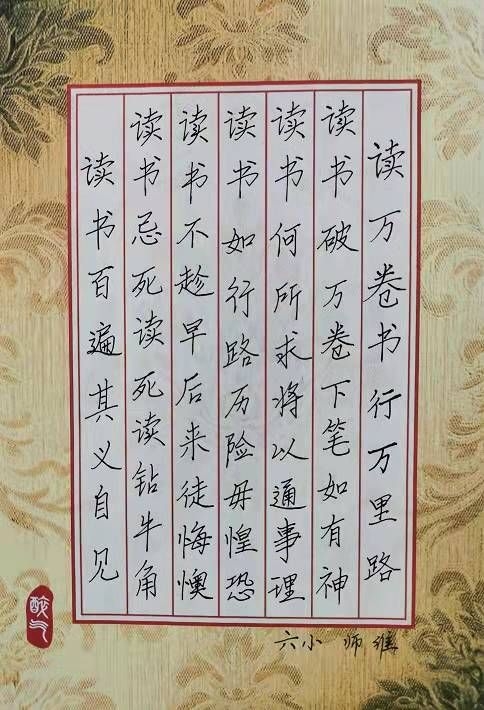 读万卷书行万里路
读书破万卷下笔如有神
读书何所求将以通事理
读书如行路历险毋惶恐
读书不趁早后来徒悔懊
读书忌死读死读钻牛角
读书百遍其义自见
六小 师维